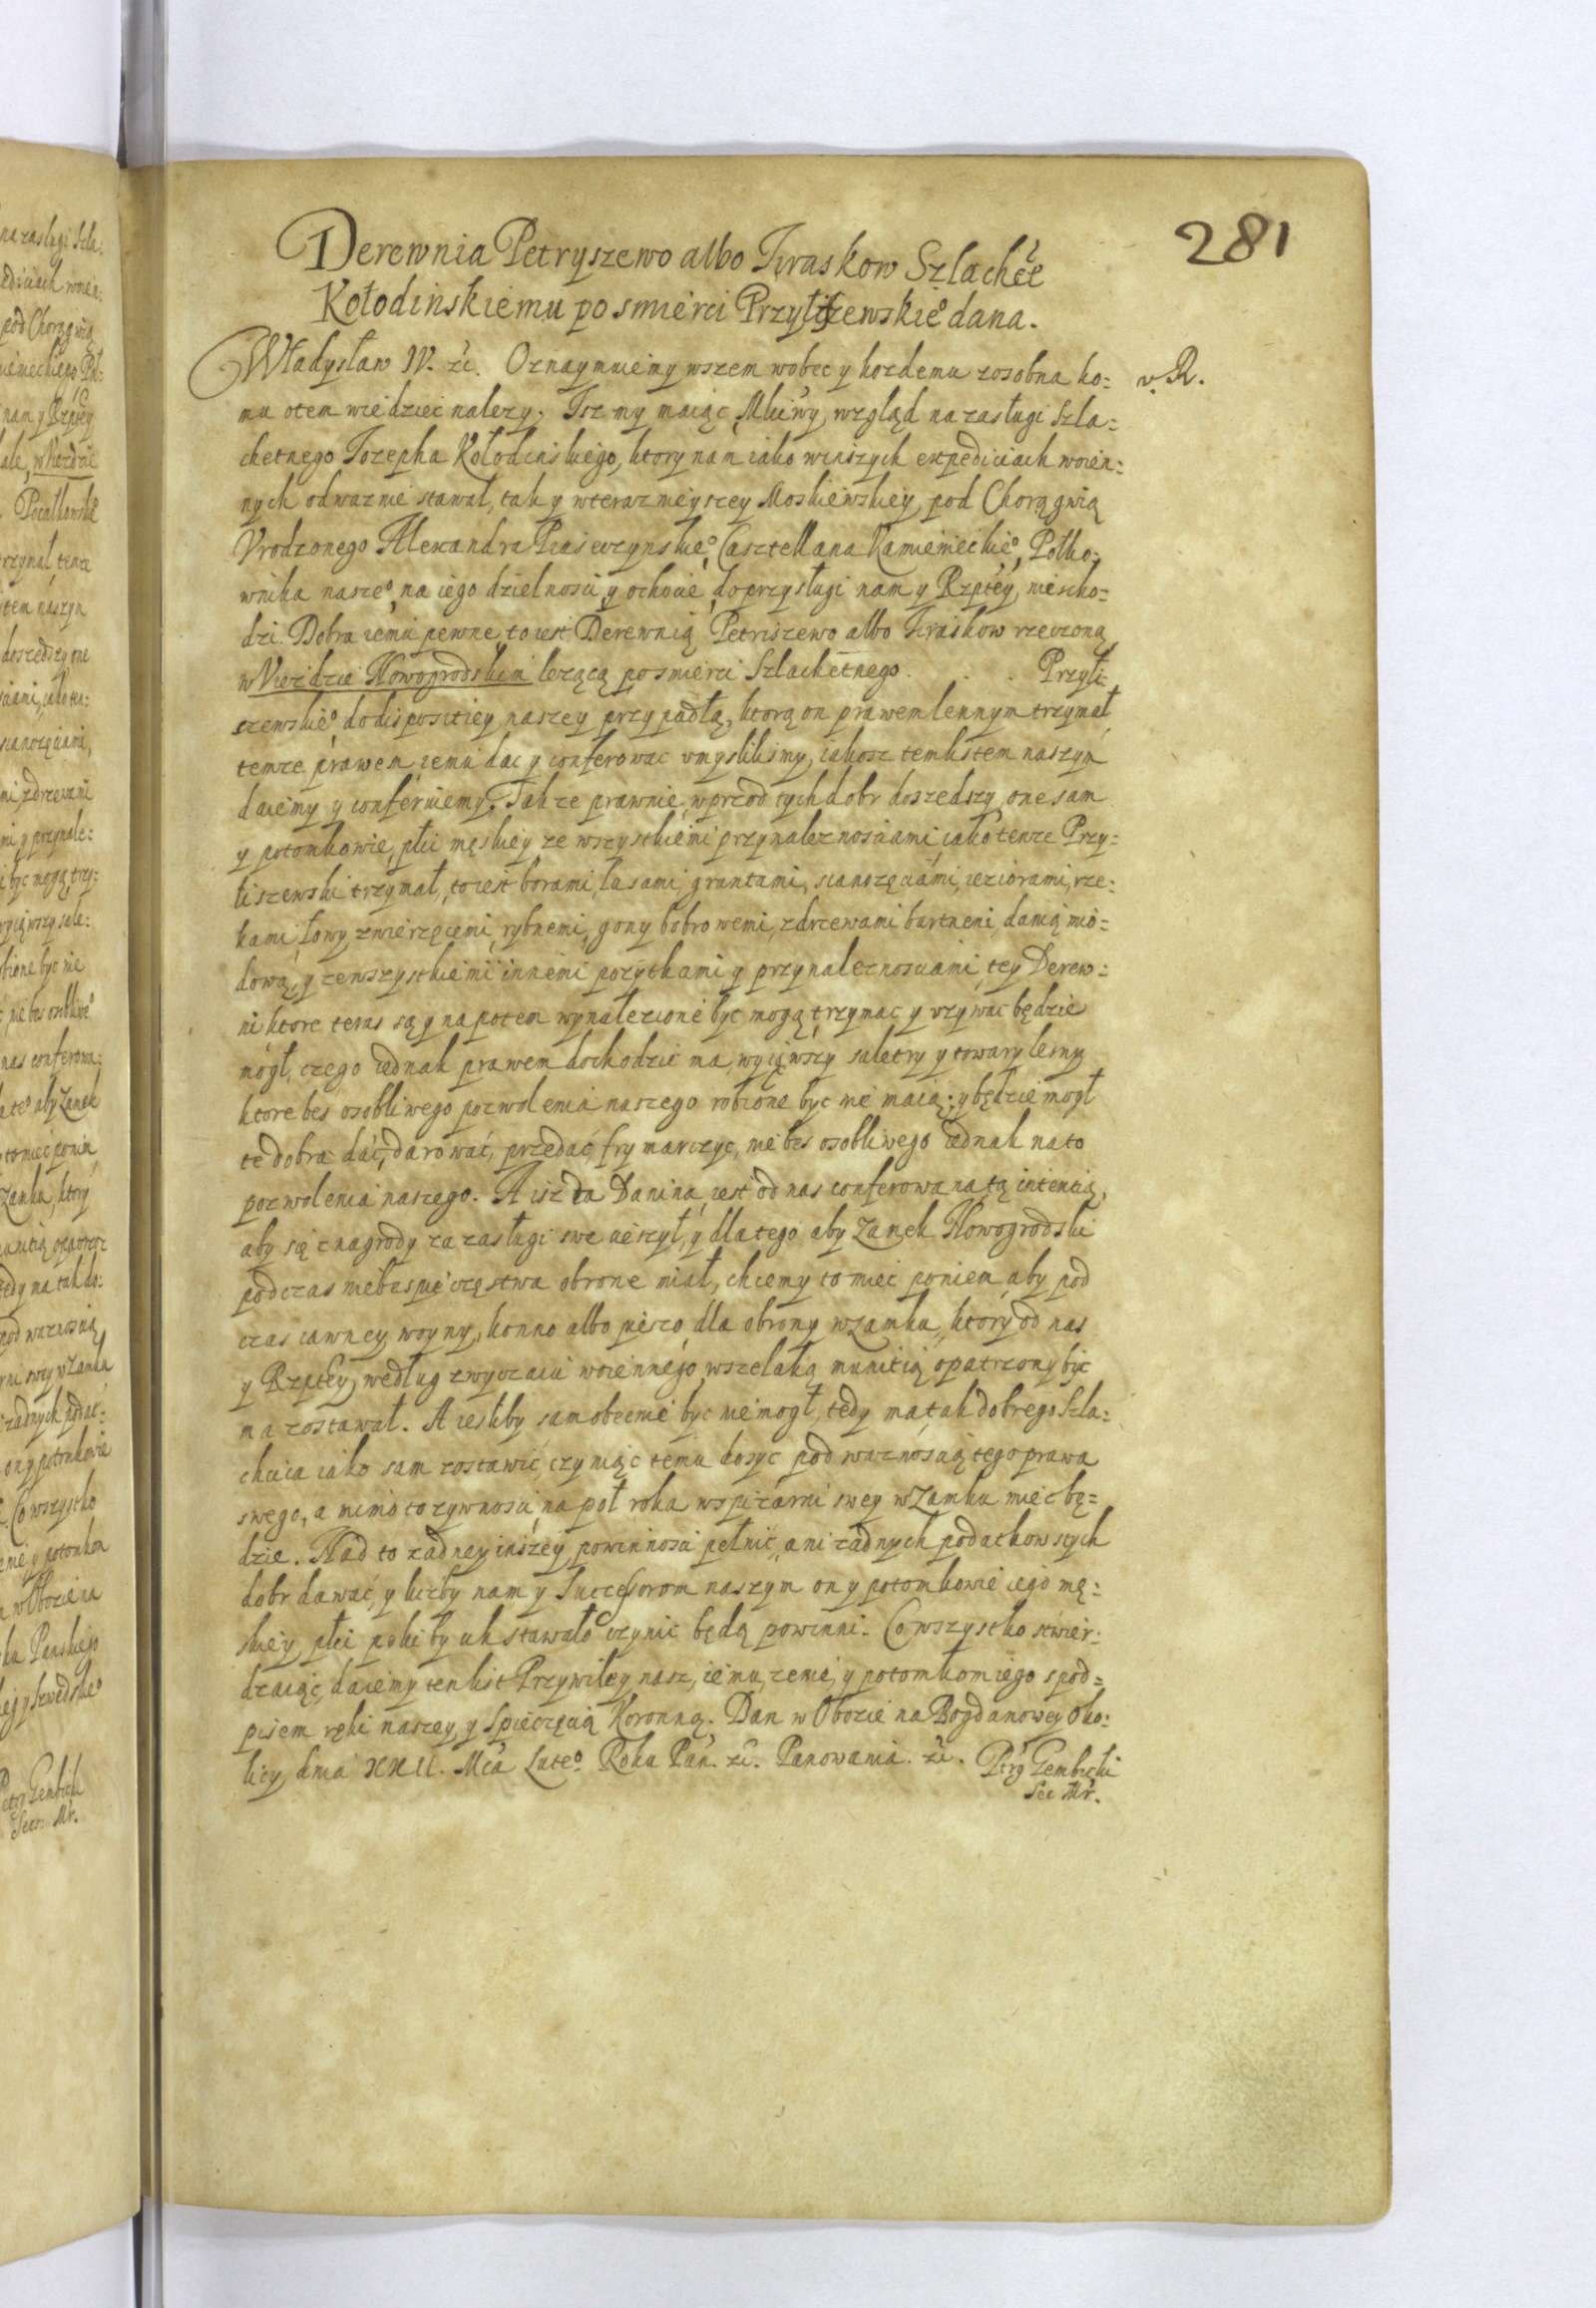 281
Derewnia Petryszewo albo Iwraskow Szlachet
Kołodinskiemu po smierci Przyliszewskie° dana.
Władysław IV. etc. Oznaymuiemy wszem wobec y kozdemu zosobna ko= v. R.
mu otem wiedziec nalezy. Isz my maiąc Młciwy wzgląd na zasługi Szla=
chetnego Iozepha Kołodinskiego, ktory nam iako winszych expediciach woien=
nych odwaznie stawał, tak y wterazneyszey Moskiewskiey pod Chorągwią
Vrodzonego Alexandra Piaseczynskie° Casztellana Kamienieckie°, Połko=
wnika nasze°, na iego dzielnosci y ochocie do przysługi nam y Rzptey nieścho=
dzi. Dobra iemu pewne to iest Derewnią Petriszewo albo Iwraskow rzeczoną
w Vieździe Nowogrodskim lezącą po smierci Szlachetnego . . . Przyli=
szewskie° do dispositiey naszey przypadłą, ktorą on prawem lennym trzymał
temze prawem iemu dac y conferowac vmyslilismy, iakosz tem listem naszym
daiemy y conferuiemy. Takze prawnie wprzod tych dobr doszedszy one sam
y potomkowie płci męskiey ze wszystkiemi przynaleznosciami, iako tenze Przy=
liszewski trzymał, to iest borami, lasami, gruntami, sianozęciami, ieziorami, rze=
kami łowy zwierzęcemi, rybnemi, gony bobrowemi, zdrzewami bartnemi, danią mio=
dową, y zewszystkiemi innemi pozytkami y przynaleznosciami tey Derew=
ni ktore teras są y napotem wynalezione byc mogą trzymac y vzywac będzie
mogł, czego iednak prawem dochodzic ma, wyiąwszy saletry y towary lesny
ktore bes osobliwego pozwolenia naszego robione byc nie maią; y będzie mogł
te dobra dać, darować, przedać, frymarczyc, nie bes osobliwego iednak na to
pozwolenia naszego. A isz ta Danina iest od nas conferowana tą intentią,
aby się z nagrody za zasługi swe cieszył, y dlatego aby Zamek Nowogrodski
podczas niebespieczęstwa obrone miał, chcemy to miec poniem, aby pod
czas iawney woyny, konno albo pieszo dla obrony w Zamku, ktory od nas
y Rzptey według zwyczaiu woiennego wszelaką munitią opatrzony byc
ma zostawał. A iesliby sam obecnie byc nie mogł, tedy ma tak dobrego Szla=
chcica iako sam zostawić, czyniąc temu dosyc pod waznością tego prawa
swego, a mimo to zywnosci na poł roka w spizarni swey w Zamku miec bę=
dzie. Nad to zadney inszey powinnosci pełnić, ani zadnych podatkow stych
dobr dawać, y liczby nam y Successorom naszym on y potomkowie iego mę=
skiey płci pokiby ich stawało czynic będą powinni. Co wszystko stwier=
dzaiąc, daiemy ten list Przywiley nasz, iemu, zenie, y potomkom iego spod=
pisem ręki naszey, y spieczęcią Koronną. Dan w Obozie na Bogdanowey Oko=
licy dnia XXII. Mca Lute° Roku Pań. etc. Panowania. etc. Piotr Gembicki
Sec Mr.